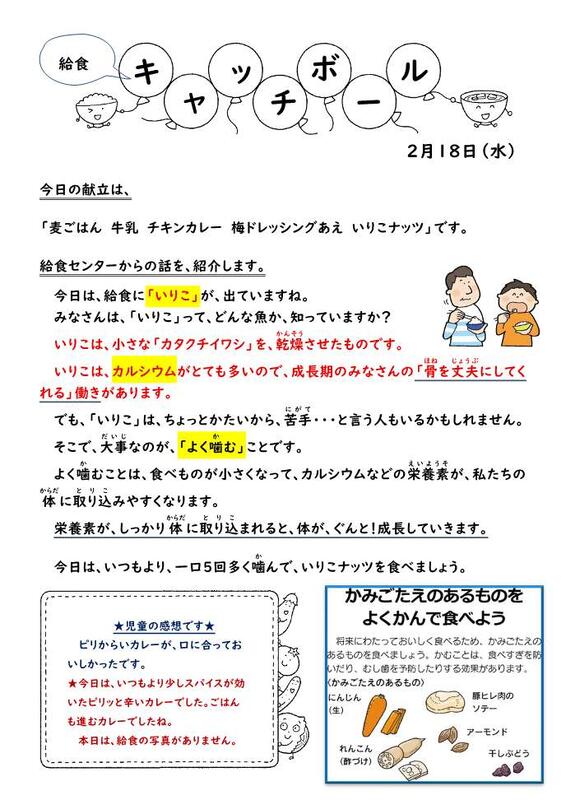 給食
キャッチボール
2月18日(水)
今日の献立は、
「麦ごはん 牛乳 チキンカレー 梅ドレッシングあえ いりこナッツ」です。
給食センターからの話を、紹介します。
今日は、給食に「いりこ」が、出ていますね。
みなさんは、「いりこ」って、どんな魚か、知っていますか?
かんそう
いりこは、小さな「カタクチイワシ」を、乾燥させたものです。
ほね じょうぶ
いりこは、カルシウムがとても多いので、成長期のみなさんの「骨を丈夫にしてく
れる」働きがあります。
にがて
でも、「いりこ」は、ちょっとかたいから、苦手・・・と言う人もいるかもしれません。
だいじ か
そこで、大事なのが、「よく噛む」ことです。
か えいようそ
よく噛むことは、食べものが小さくなって、カルシウムなどの栄養素が、私たちの
からだ と り こ
体に取り込みやすくなります。
からだ と り こ
栄養素が、しっかり体に取り込まれると、体が、ぐんと!成長していきます。
か
今日は、いつもより、一口5回多く噛んで、いりこナッツを食べましょう。
★児童の感想です★
ピリからいカレーが、口に合ってお
いしかったです。
★今日は、いつもより少しスパイスが効
いたピリッと辛いカレーでした。ごはん
も進むカレーでしたね。
本日は、給食の写真がありません。
かみごたえのあるものを
よくかんで食べよう
将来にわたっておいしく食べるため、かみごたえの
あるものを食べましょう。かむことは、食べすぎを防
いだり、むし歯を予防したりする効果があります。
〈かみごたえのあるもの〉
にんじん
(生)
豚ヒレ肉の
ソテー
アーモンド
れんこん
(酢づけ)
干しぶどう